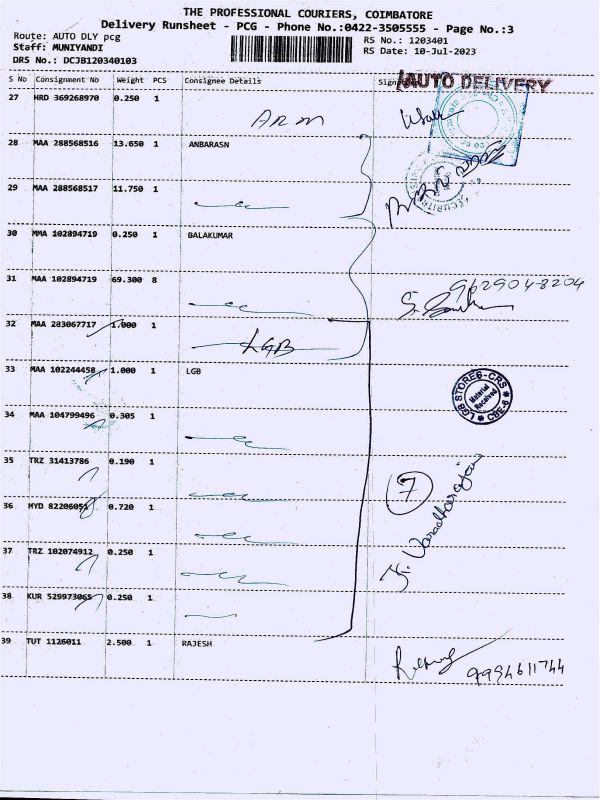 THE PROFESSIONAL COURIERS, COIMBATORE
Delivery Runsheet - PCG - Phone No.:0422-3505555 - Page No.:3
Route: AUTO DLY pcg
RS No.: 1203401
Staff: MUNIYANDI
RS Date: 10-Jul-2023
DRS No.: DCJB120340103
AUTO DELIVERY
S No Consignment No Weight PCS Consignee Details
27 HRD 369268970 0.250 1
ARM
28 MAA 288568516 13.650 1 ANBARASN
29 MAA 288568517 11.750 1
30 MMA 102894719 0.250 1 BALAKUMAR
31 MAA 102894719 69.300 8
9629048204
32 MAA 283067717 1.000 1
LGB
33 MAA 102244458 1.000 1 LGB
LGB STORES-CRS
Material
Received
34 MAA 104799496 0.305 1
35 TRZ 31413786 0.190 1
7
36 HYD 82206051 0.720 1
Varadharajan
37 TRZ 102074912 0.250 1
38 KUR 529973065 0.250 1
39 TUT 1126011 2.500 1 RAJESH
9994611744